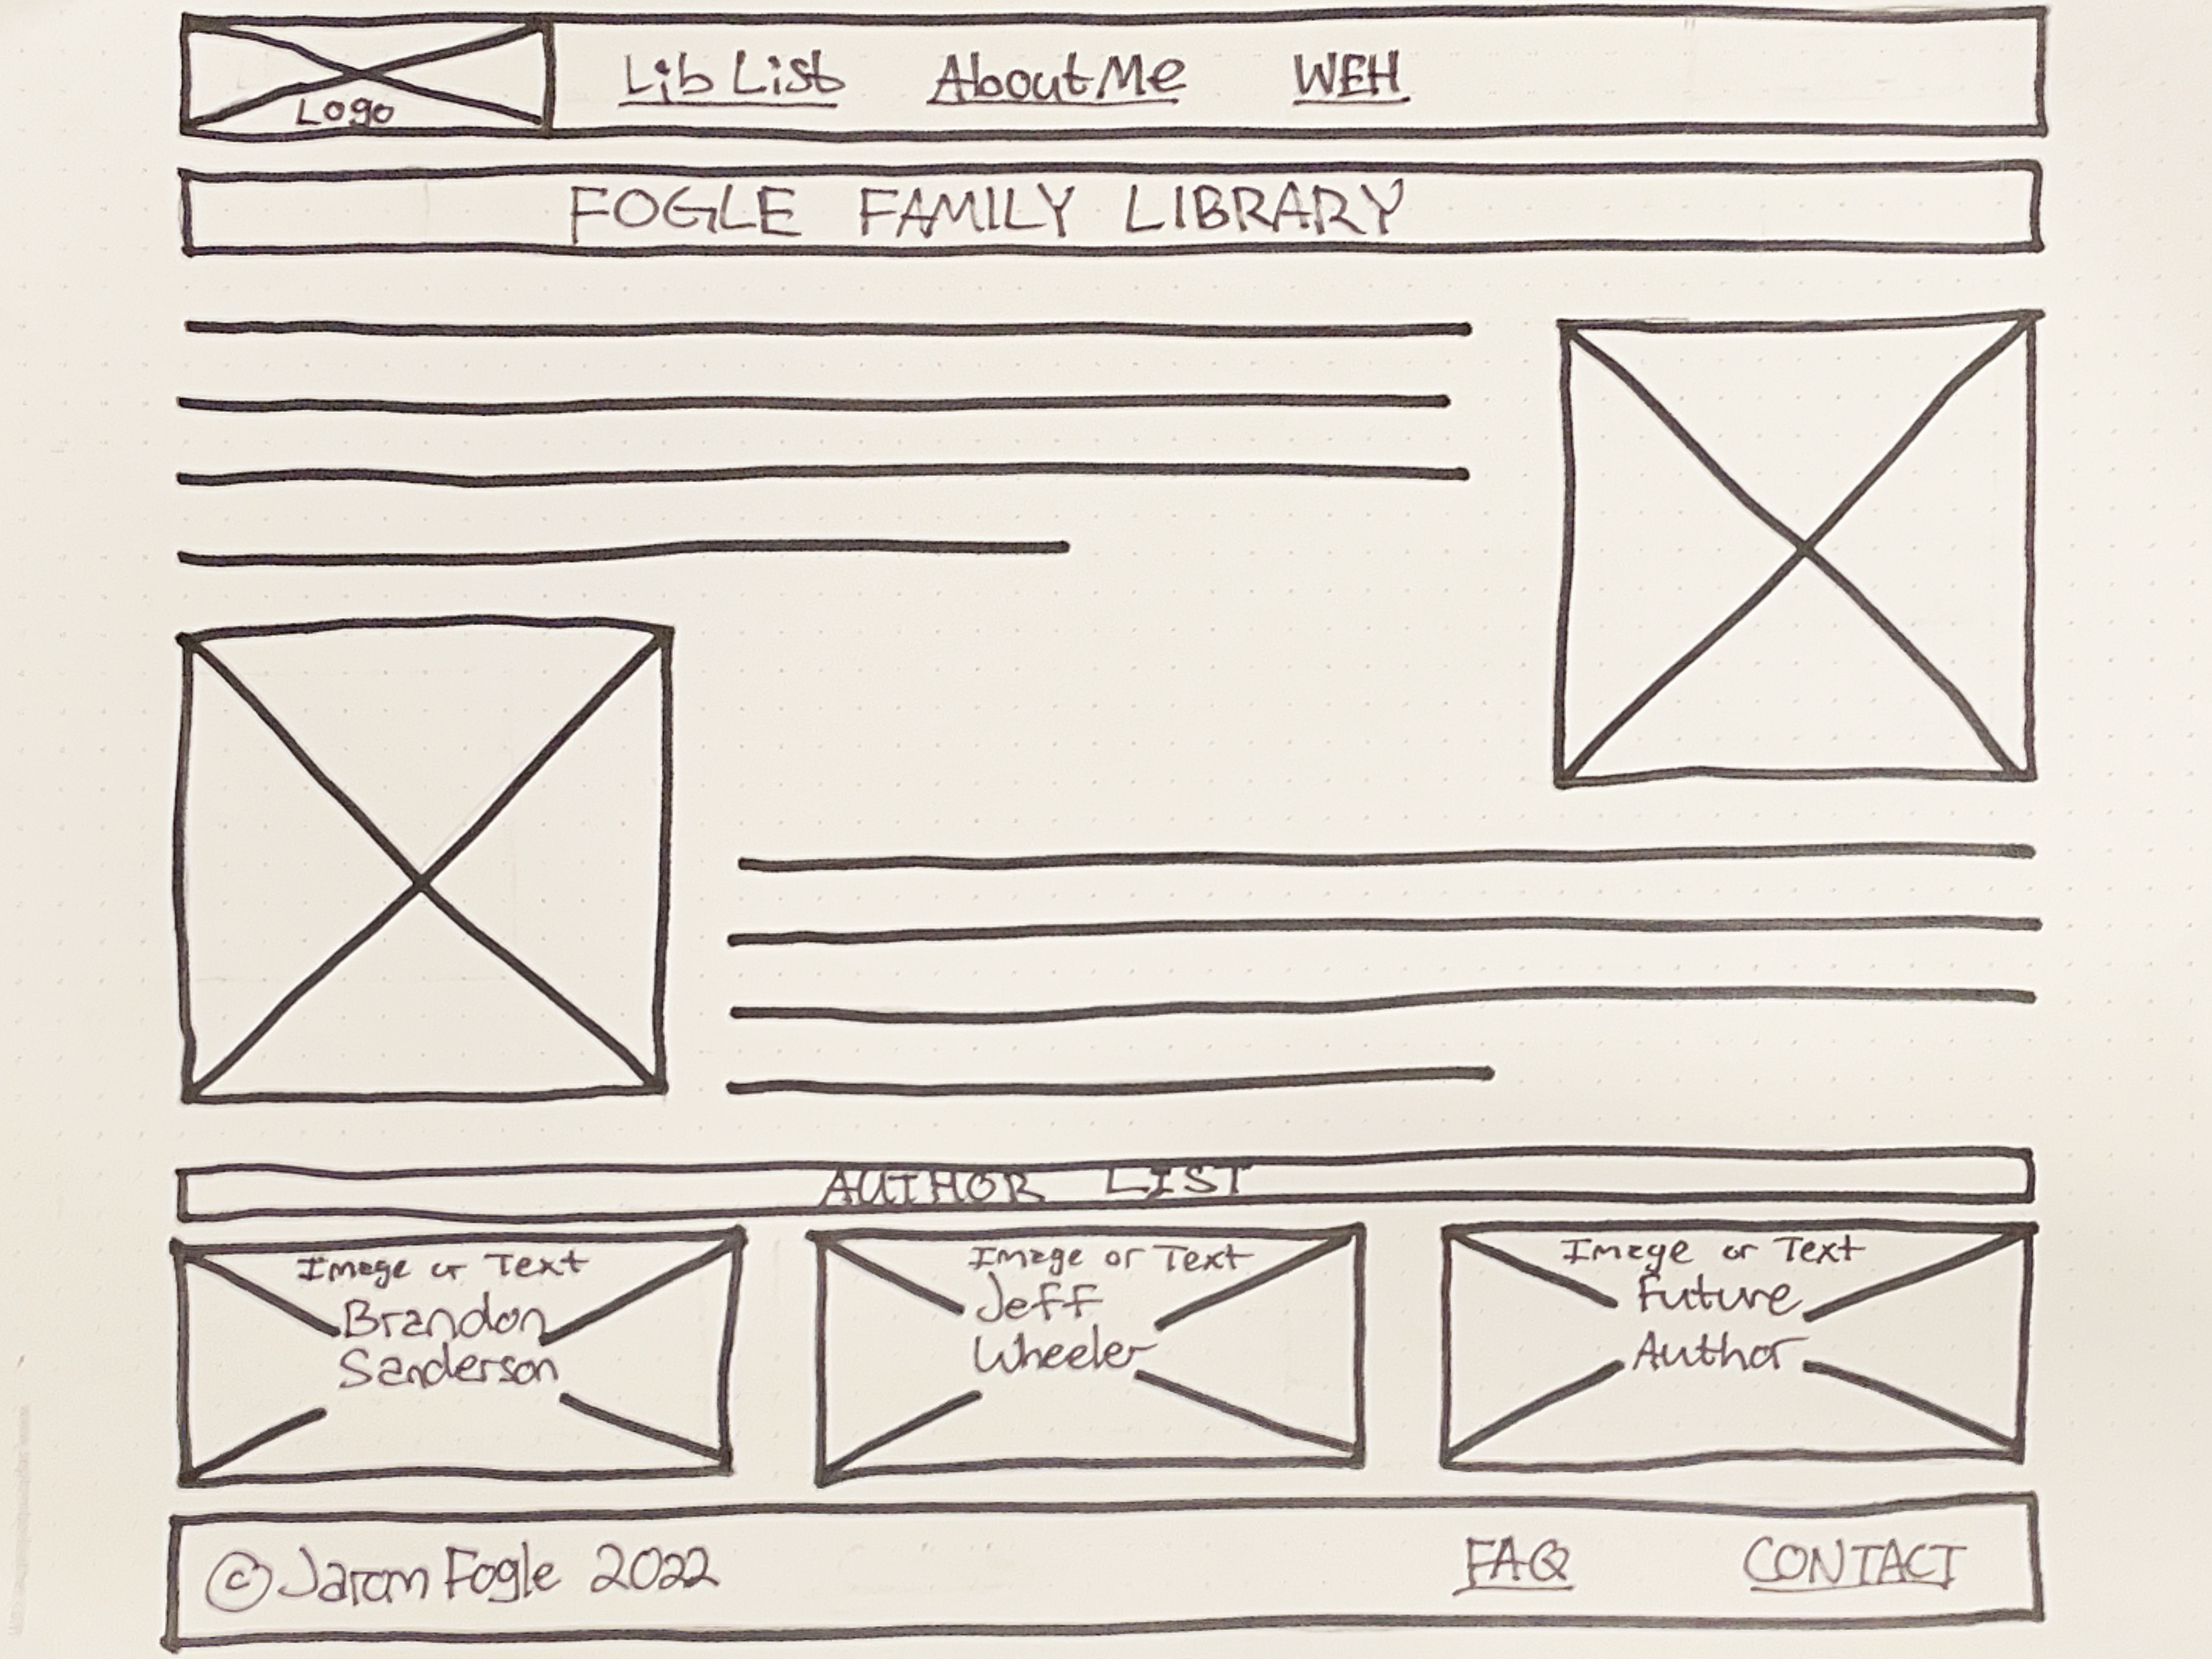 Logo
Lib List About Me WEH
FOGLE FAMILY LIBRARY
AUTHOR LIST
Image or Text
Brandon
Sanderson
Image or Text
Jeff
Wheeler
Image or Text
Future
Author
© Jarom Fogle 2022
FAQ CONTACT